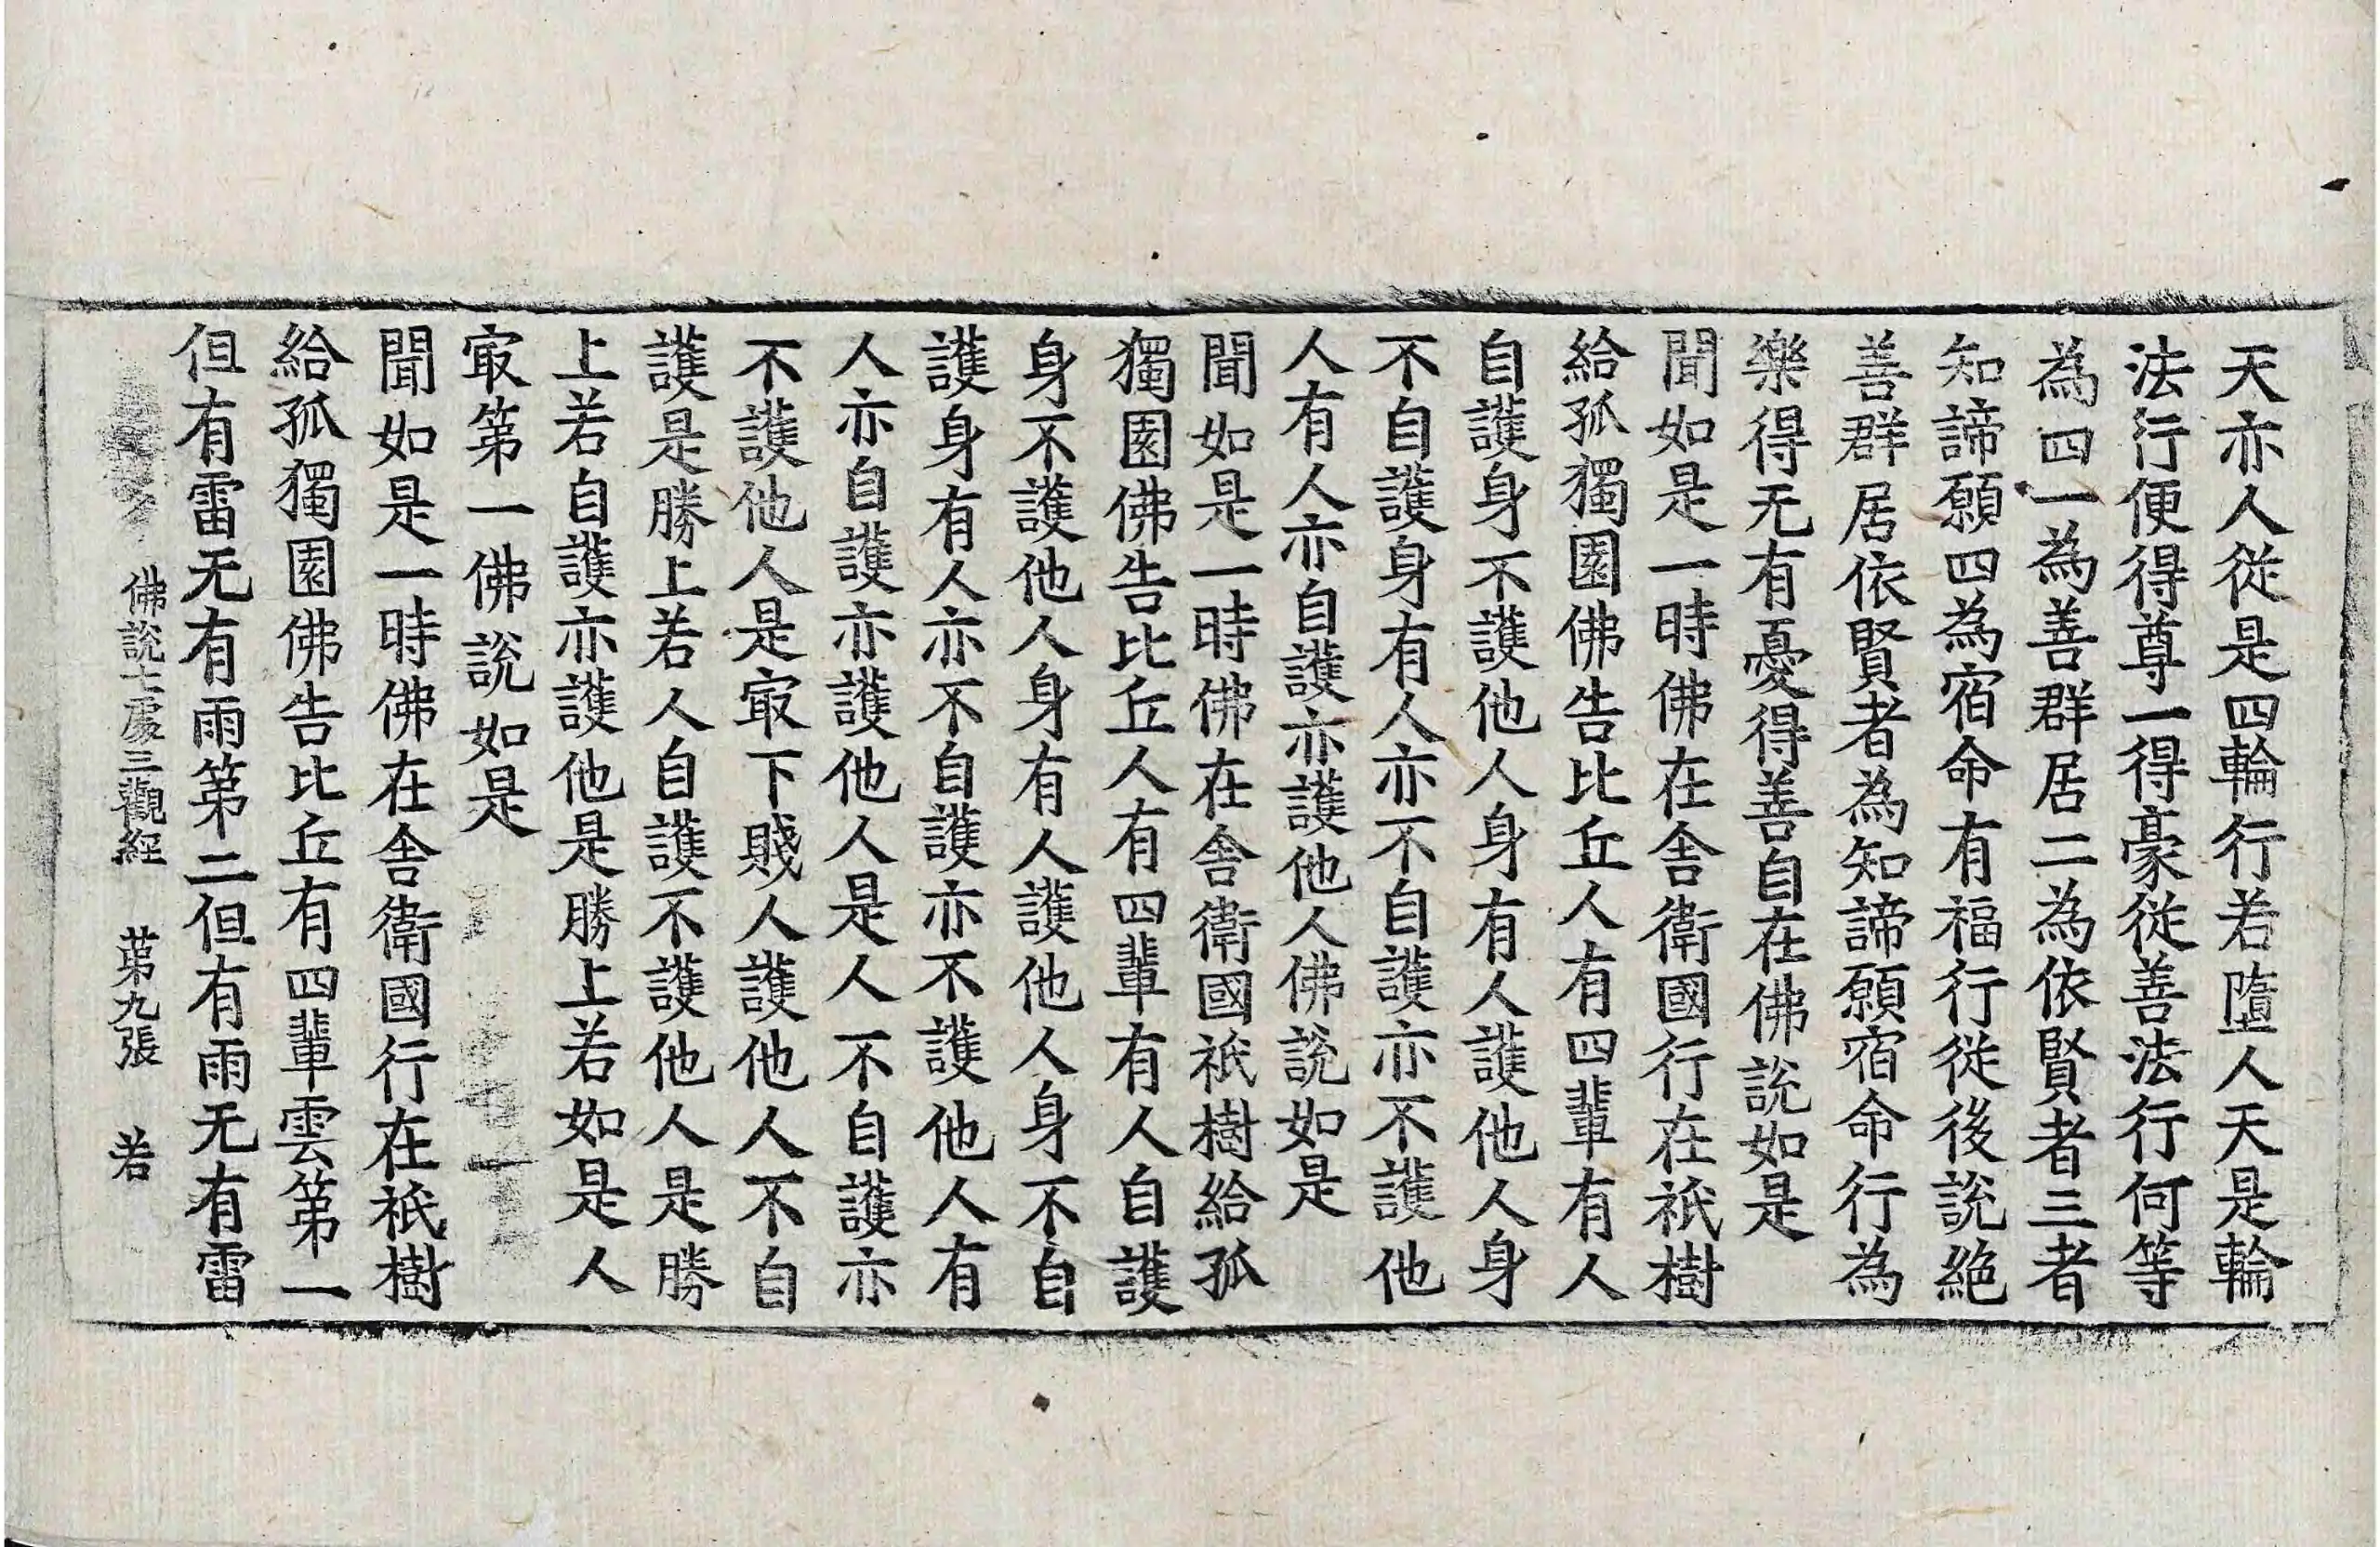 天亦人從是四輪行若墮人天是輪
法行便得尊一得豪從善法行何等
為四一為善群居二為依賢者三者
知諦願四為宿命有福行從後說絕
善群居依賢者為知諦願宿命行為
樂得无有憂得善自在佛說如是
聞如是一時佛在舍衛國行在祇樹
給孤獨園佛告比丘人有四輩有人
自護身不護他人身有人護他人身
不自護身有人亦不自護亦不護他
人有人亦自護亦護他人佛說如是
聞如是一時佛在舍衛國祇樹給孤
獨園佛告比丘人有四輩有人自護
身不護他人身有人護他人身不自
護身有人亦不自護亦不護他人有
人亦自護亦護他人是人不自護亦
不護他人是冣下賤人護他人不自
護是勝上若人自護不護他人是勝
上若自護亦護他是勝上若如是人
冣第一佛說如是
聞如是一時佛在舍衛國行在祇樹
給孤獨園佛告比丘有四輩雲第一
但有雷无有雨第二但有雨无有雷
佛說七處三觀經 第九張 若